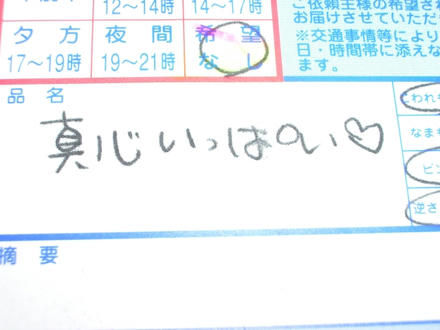 12〜14時 14〜17時
夕方 夜間 希望なし
17〜19時 19〜21時
ご依頼主様の希望され
お届けさせていただ
※交通事情等により
日・時間帯に添えな
ます。
品名
真心いっぱい♡
われも
なまも
ビン
逆さ
摘要